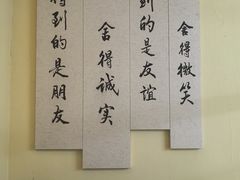 舍得微笑
到的是友谊
舍得诚实
得到的是朋友